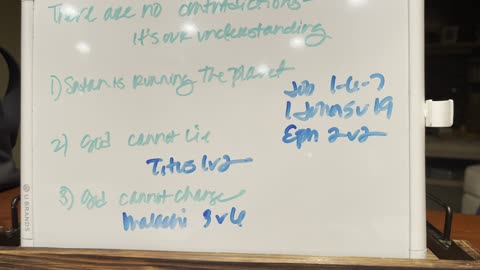 There are no contradictions
it's our understanding
1) Satan is running the planet
Job 1-6-7
1 John 5 v 19
Eph 2 v 2
2) God cannot lie
Titus 1 v 2
3) God cannot change
Malachi 3 v 6
U BRANDS